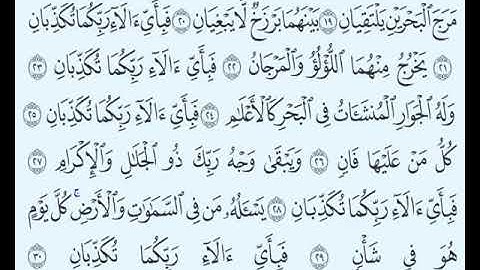 مَرَجَ ٱلْبَحْرَيْنِ يَلْتَقِيَانِ ١٩ بَيْنَهُمَا بَرْزَخٌ لَّا يَبْغِيَانِ ٢٠ فَبِأَىِّ ءَالَآءِ رَبِّكُمَا تُكَذِّبَانِ
٢١ يَخْرُجُ مِنْهُمَا ٱللُّؤْلُؤُ وَٱلْمَرْجَانُ ٢٢ فَبِأَىِّ ءَالَآءِ رَبِّكُمَا تُكَذِّبَانِ ٢٣
وَلَهُ ٱلْجَوَارِ ٱلْمُنشَـَٔاتُ فِى ٱلْبَحْرِ كَٱلْأَعْلَـٰمِ ٢٤ فَبِأَىِّ ءَالَآءِ رَبِّكُمَا تُكَذِّبَانِ ٢٥
كُلُّ مَنْ عَلَيْهَا فَانٍ ٢٦ وَيَبْقَىٰ وَجْهُ رَبِّكَ ذُو ٱلْجَلَـٰلِ وَٱلْإِكْرَامِ ٢٧
فَبِأَىِّ ءَالَآءِ رَبِّكُمَا تُكَذِّبَانِ ٢٨ يَسْـَٔلُهُۥ مَن فِى ٱلسَّمَـٰوَٰتِ وَٱلْأَرْضِ ۚ كُلَّ يَوْمٍ
هُوَ فِى شَأْنٍ ٢٩ فَبِأَىِّ ءَالَآءِ رَبِّكُمَا تُكَذِّبَانِ ٣٠